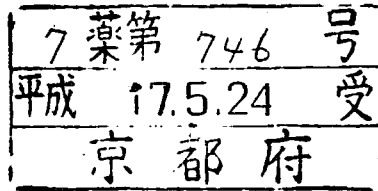 7薬第 746 号
平成 17.5.24 受
京都府